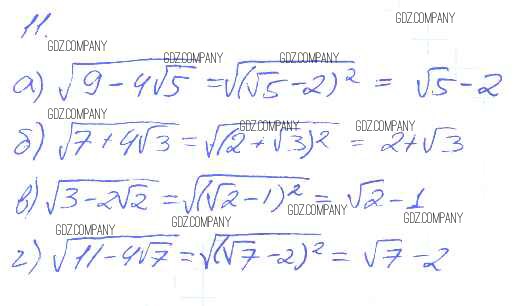 11.
GDZ.COMPANY
GDZ.COMPANY
GDZ.COMPANY
GDZ.COMPANY
а) √(9 - 4√5) = √((√5 - 2)²) = √5 - 2
GDZ.COMPANY
GDZ.COMPANY
GDZ.COMPANY
б) √(7 + 4√3) = √((2 + √3)²) = 2 + √3
в) √(3 - 2√2) = √((√2 - 1)²) = √2 - 1
GDZ.COMPANY
GDZ.COMPANY
GDZ.COMPANY
GDZ.COMPANY
г) √(11 - 4√7) = √((√7 - 2)²) = √7 - 2